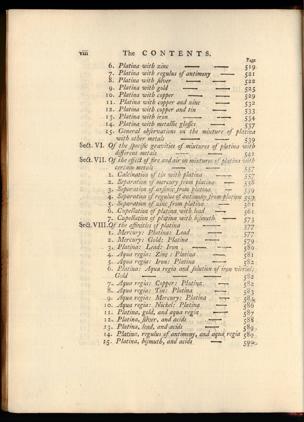 viii The CONTENTS.
Page
6. Platina with zinc 519
7. Platina with regulus of antimony 521
8. Platina with silver 522
9. Platina with gold 525
10. Platina with copper 529
11. Platina with copper and zinc 532
12. Platina with copper and tin 533
13. Platina with iron 534
14. Platina with metallic glasses 537
15. General observations on the mixture of platina
with other metals 539
Sect. VI. Of the specific gravities of mixtures of platina with
different metals 541
Sect. VII. Of the effect of fire and air on mixtures of platina with
certain metals 557
1. Calcination of tin with platina 557
2. Separation of mercury from platina 558
3. Separation of arsenic from platina 559
4. Separation of regulus of antimony from platina 559
5. Separation of zinc from platina 561
6. Cupellation of platina with lead 561
7. Cupellation of platina with bismuth 573
Sect. VIII. Of the affinities of platina 577
1. Mercury: Platina: Lead 577
2. Mercury: Gold: Platina 579
3. Platina: Lead: Iron 580
4. Aqua regia: Zinc: Platina 581
5. Aqua regia: Iron: Platina 582
6. Platina: Aqua regia and solution of iron vitriol:
Gold 582
7. Aqua regia: Copper: Platina 582
8. Aqua regia: Tin: Platina 583
9. Aqua regia: Mercury: Platina
10. Aqua regia: Nickel: Platina 586
11. Platina, gold, and aqua regia 587
12. Platina, silver, and acids 588
13. Platina, lead, and acids 589
14. Platina, regulus of antimony, and aqua regia 589
15. Platina, bismuth, and acids 590